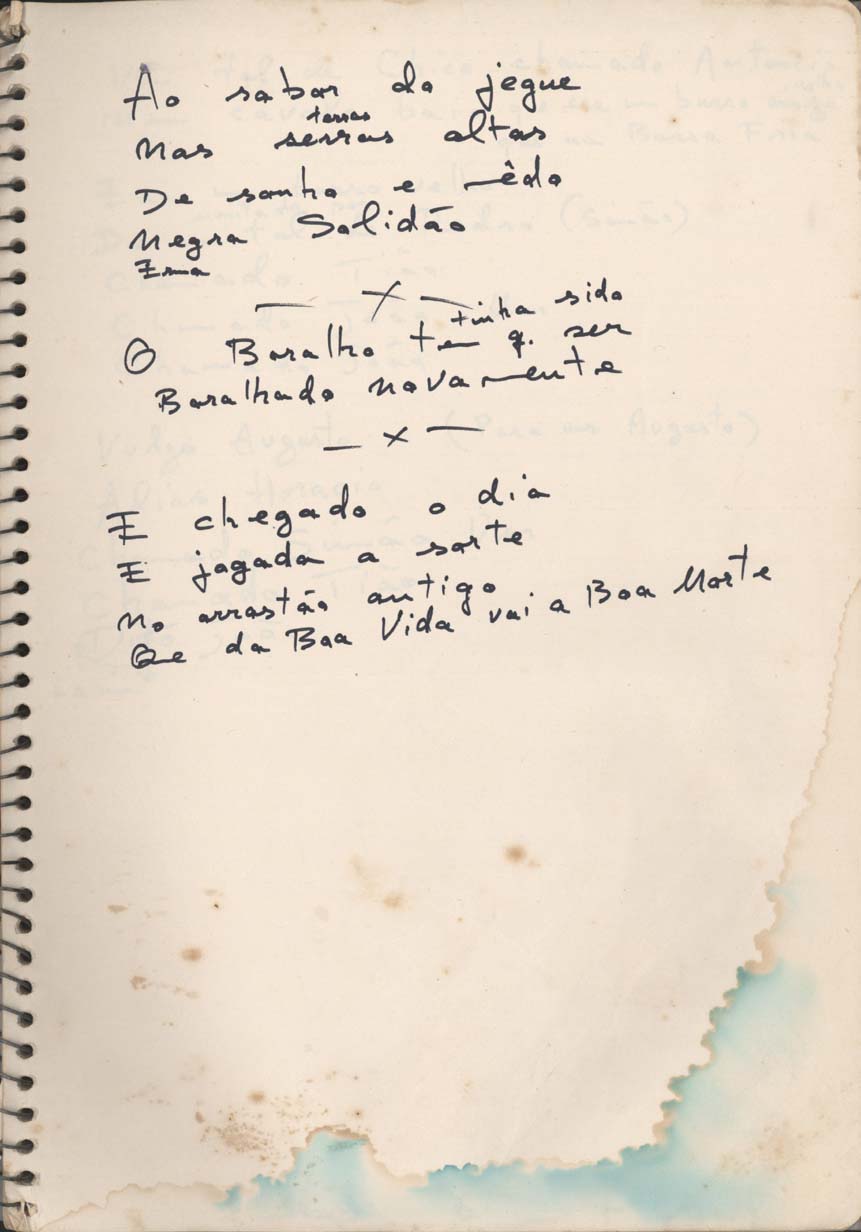 Ao sabor do jegue
terras
Nas serras altas
De sonho e mêdo
Negra Solidão
Erma
— X —
tinha sido
O Baralho tem q. ser
Baralhado novamente
— x —
E chegado o dia
E jogada a sorte
No arrastão antigo
Que da Boa Vida vai a Boa Morte